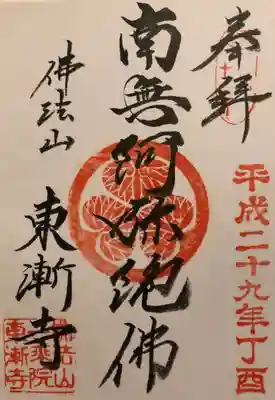 奉拝
平成二十九年丁酉
南無阿弥陀佛
佛法山
東漸寺
佛法山
乗院
東漸寺